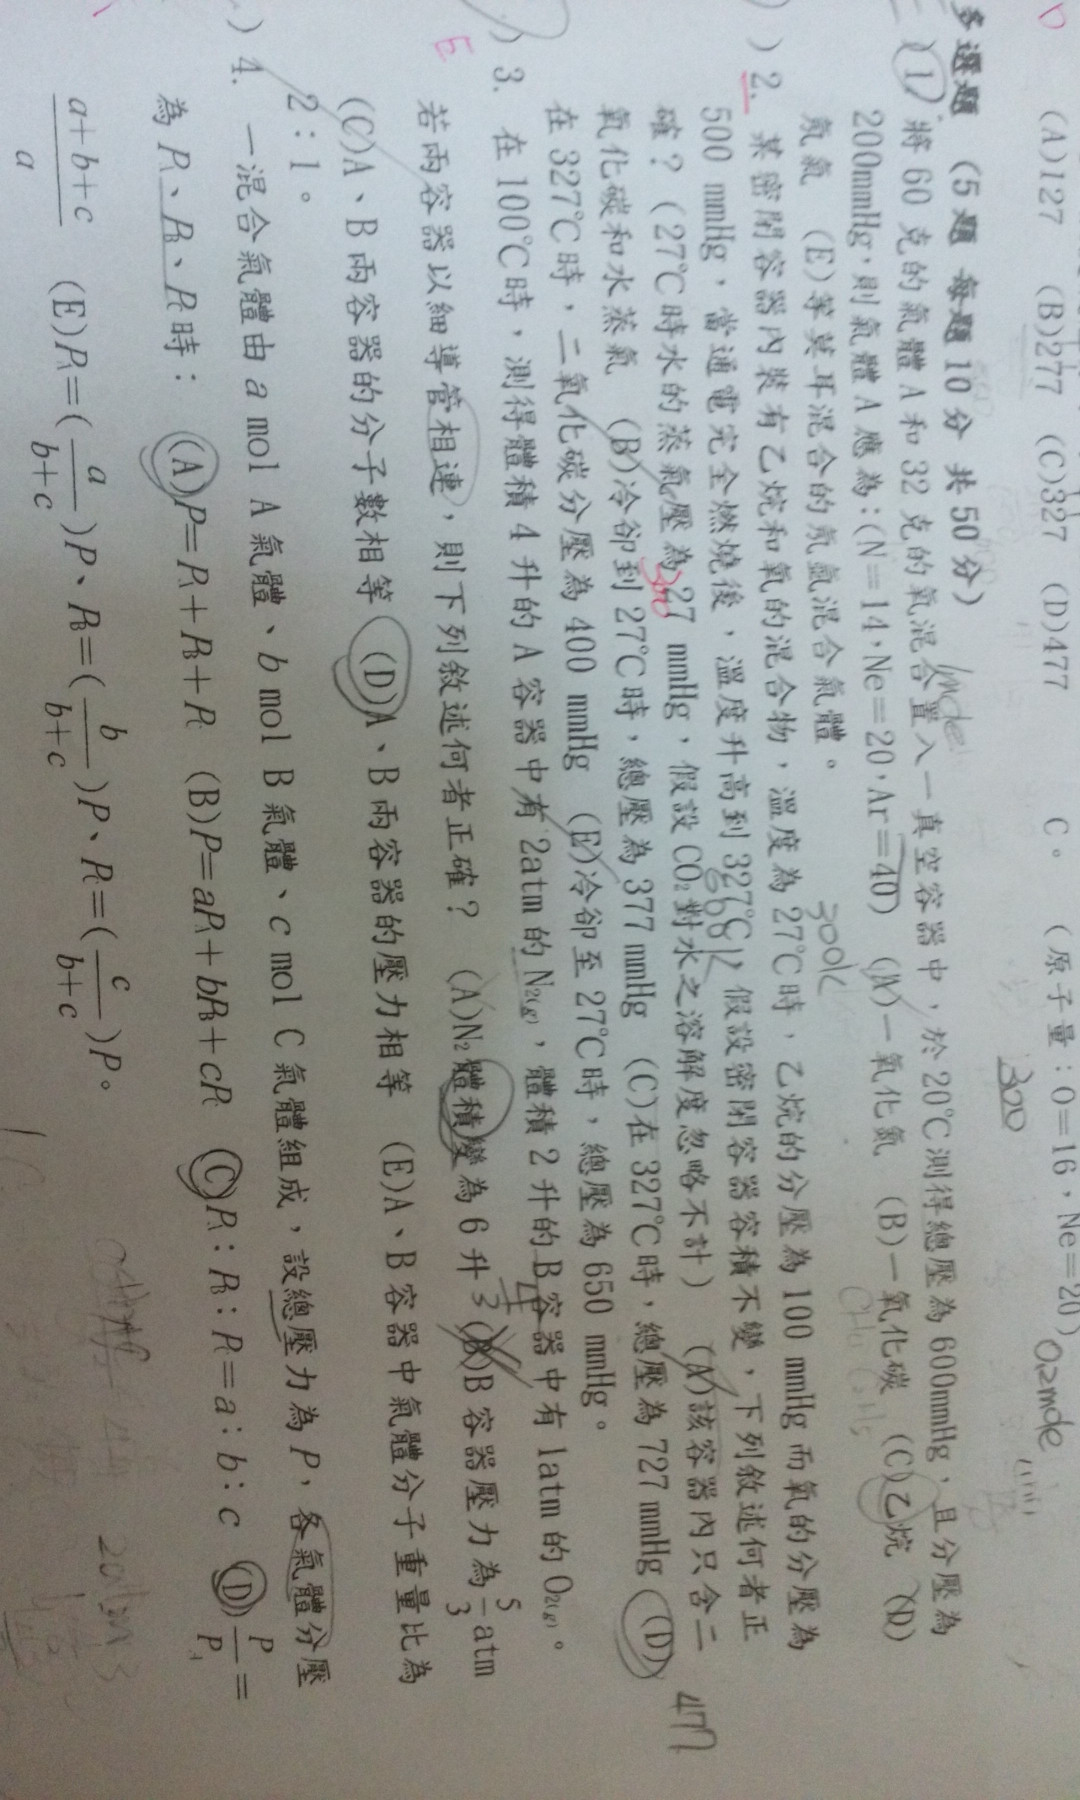 (A)127 (B)277 (C)327 (D)477 C。 (原子量：O=16，Ne=20)
0.2mole
300
多選題 (5題 每題10分 共50分)
1. 將60克的氣體A和32克的氧混合置入一真空容器中，於20℃測得總壓為600mmHg，且分壓為
1mole
200mmHg，則氣體A應為：(N=14，Ne=20，Ar=40) (A)一氧化氮 (B)一氧化碳 (C)乙烷 (D)
氖氣 (E)等莫耳混合的氖氬混合氣體。
300K
2. 某密閉容器內裝有乙烷和氧的混合物，溫度為27℃時，乙烷的分壓為100 mmHg而氧的分壓為
500 mmHg，當通電完全燃燒後，溫度升高到327℃，假設密閉容器容積不變，下列敘述何者正
確？(27℃時水的蒸氣壓為27 mmHg，假設CO₂對水之溶解度忽略不計) (A)該容器內只含二
氧化碳和水蒸氣 (B)冷卻到27℃時，總壓為377 mmHg (C)在327℃時，總壓為727 mmHg (D)
477
在327℃時，二氧化碳分壓為400 mmHg (E)冷卻至27℃時，總壓為650 mmHg。
3. 在100℃時，測得體積4升的A容器中有2atm的N₂(g)，體積2升的B容器中有1atm的O₂(g)。
E
若兩容器以細導管相連，則下列敘述何者正確？ (A)N₂體積變為6升 (B)B容器壓力為5/3 atm
(C)A、B兩容器的分子數相等 (D)A、B兩容器的壓力相等 (E)A、B容器中氣體分子重量比為
2：1。
4. 一混合氣體由a mol A氣體、b mol B氣體、c mol C氣體組成，設總壓力為P，各氣體分壓
為P_A、P_B、P_C時： (A)P=P_A+P_B+P_C (B)P=aP_A+bP_B+cP_C (C)P_A：P_B：P_C=a：b：c (D)P/P_A=
(a+b+c)/a (E)P_A=(a/(b+c))P、P_B=(b/(b+c))P、P_C=(c/(b+c))P。